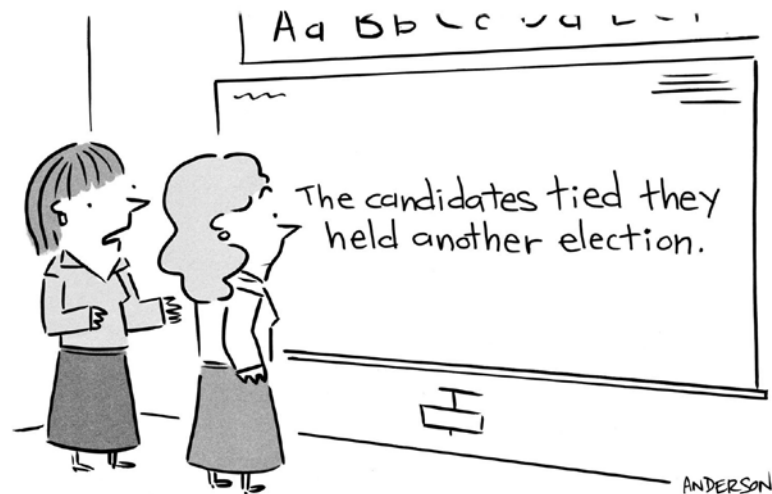 Aa Bb Cc
The candidates tied they
held another election.
ANDERSON